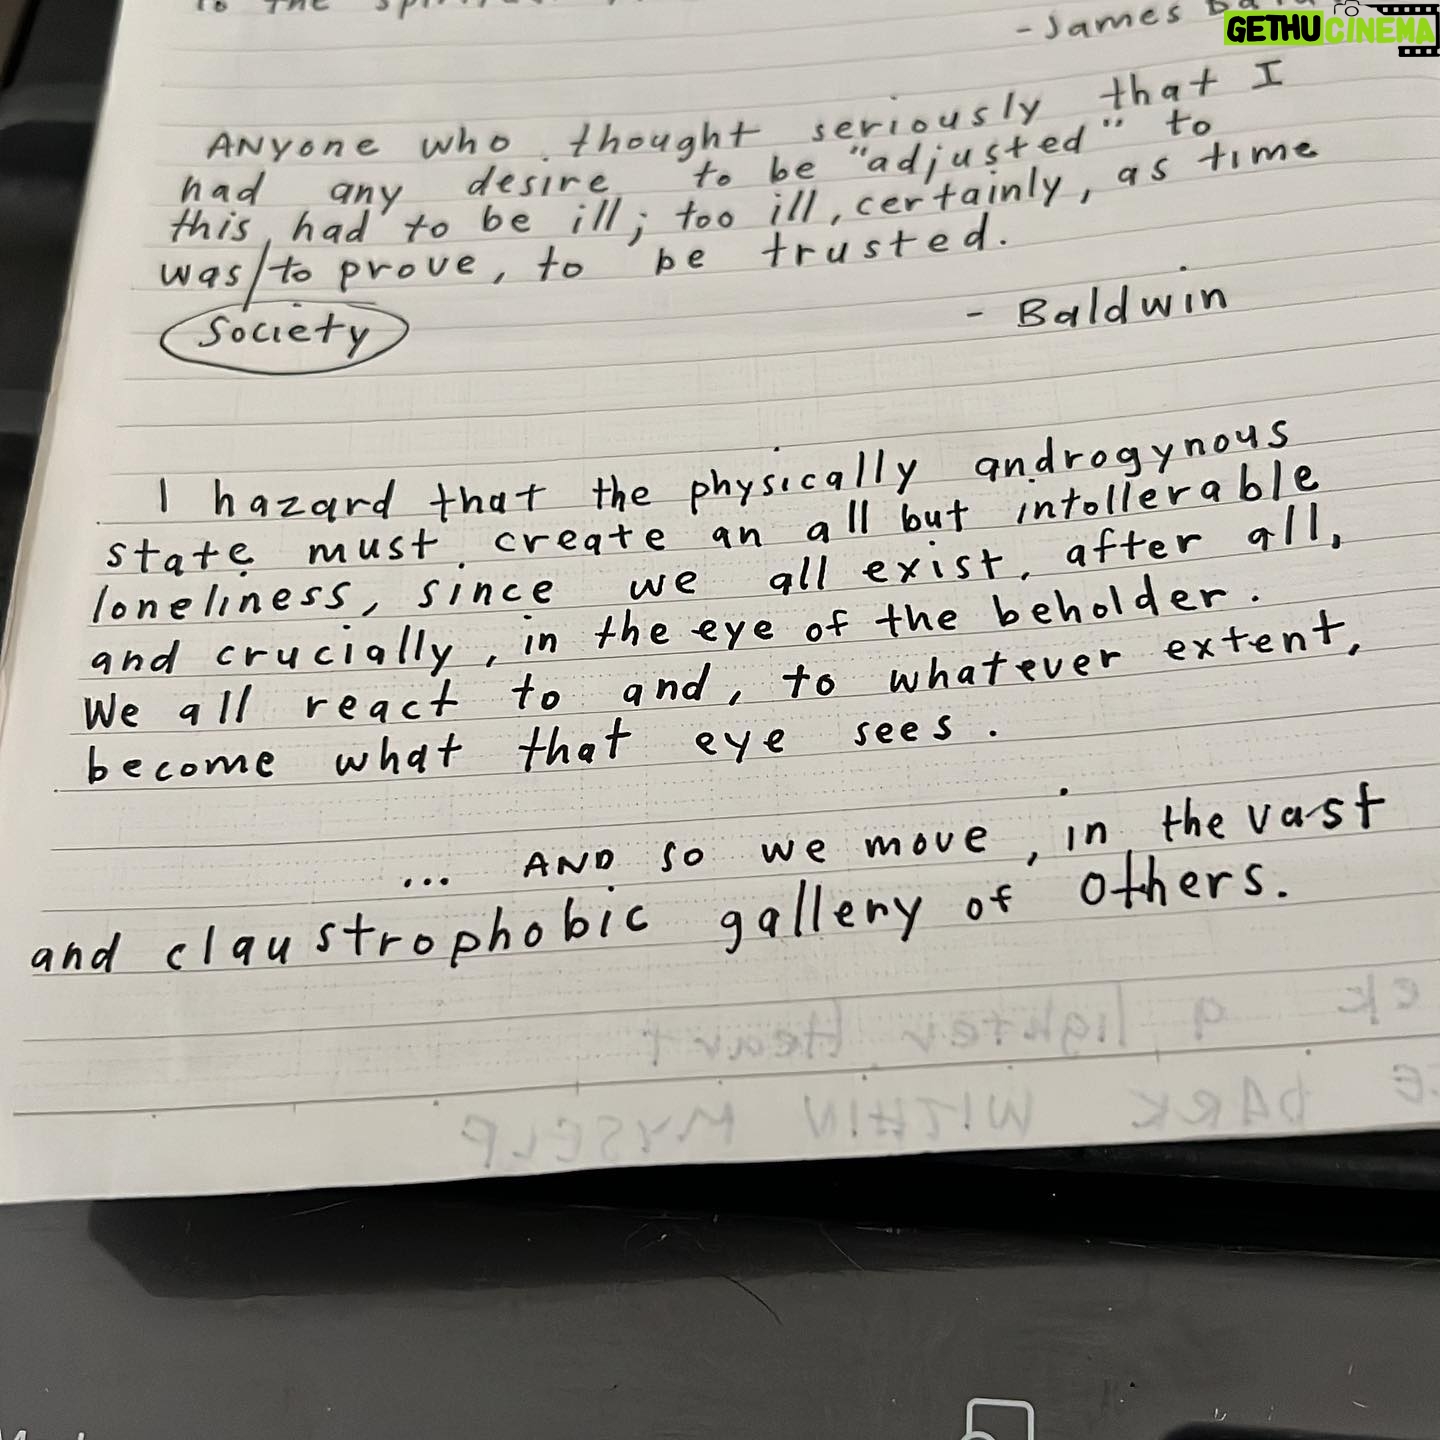 to the
- James
GETHU CINEMA
ANYone who thought seriously that I
had any desire to be "adjusted" to
this had to be ill; too ill, certainly, as time
was/to prove, to be trusted.
Society
- Baldwin
I hazard that the physically androgynous
state must create an all but intollerable
loneliness, since we all exist, after all,
and crucially, in the eye of the beholder.
We all react to and, to whatever extent,
become what that eye sees.
... AND so we move, in the vast
and claustrophobic gallery of others.
a lighter Heart
DARK WITHIN MYSELF